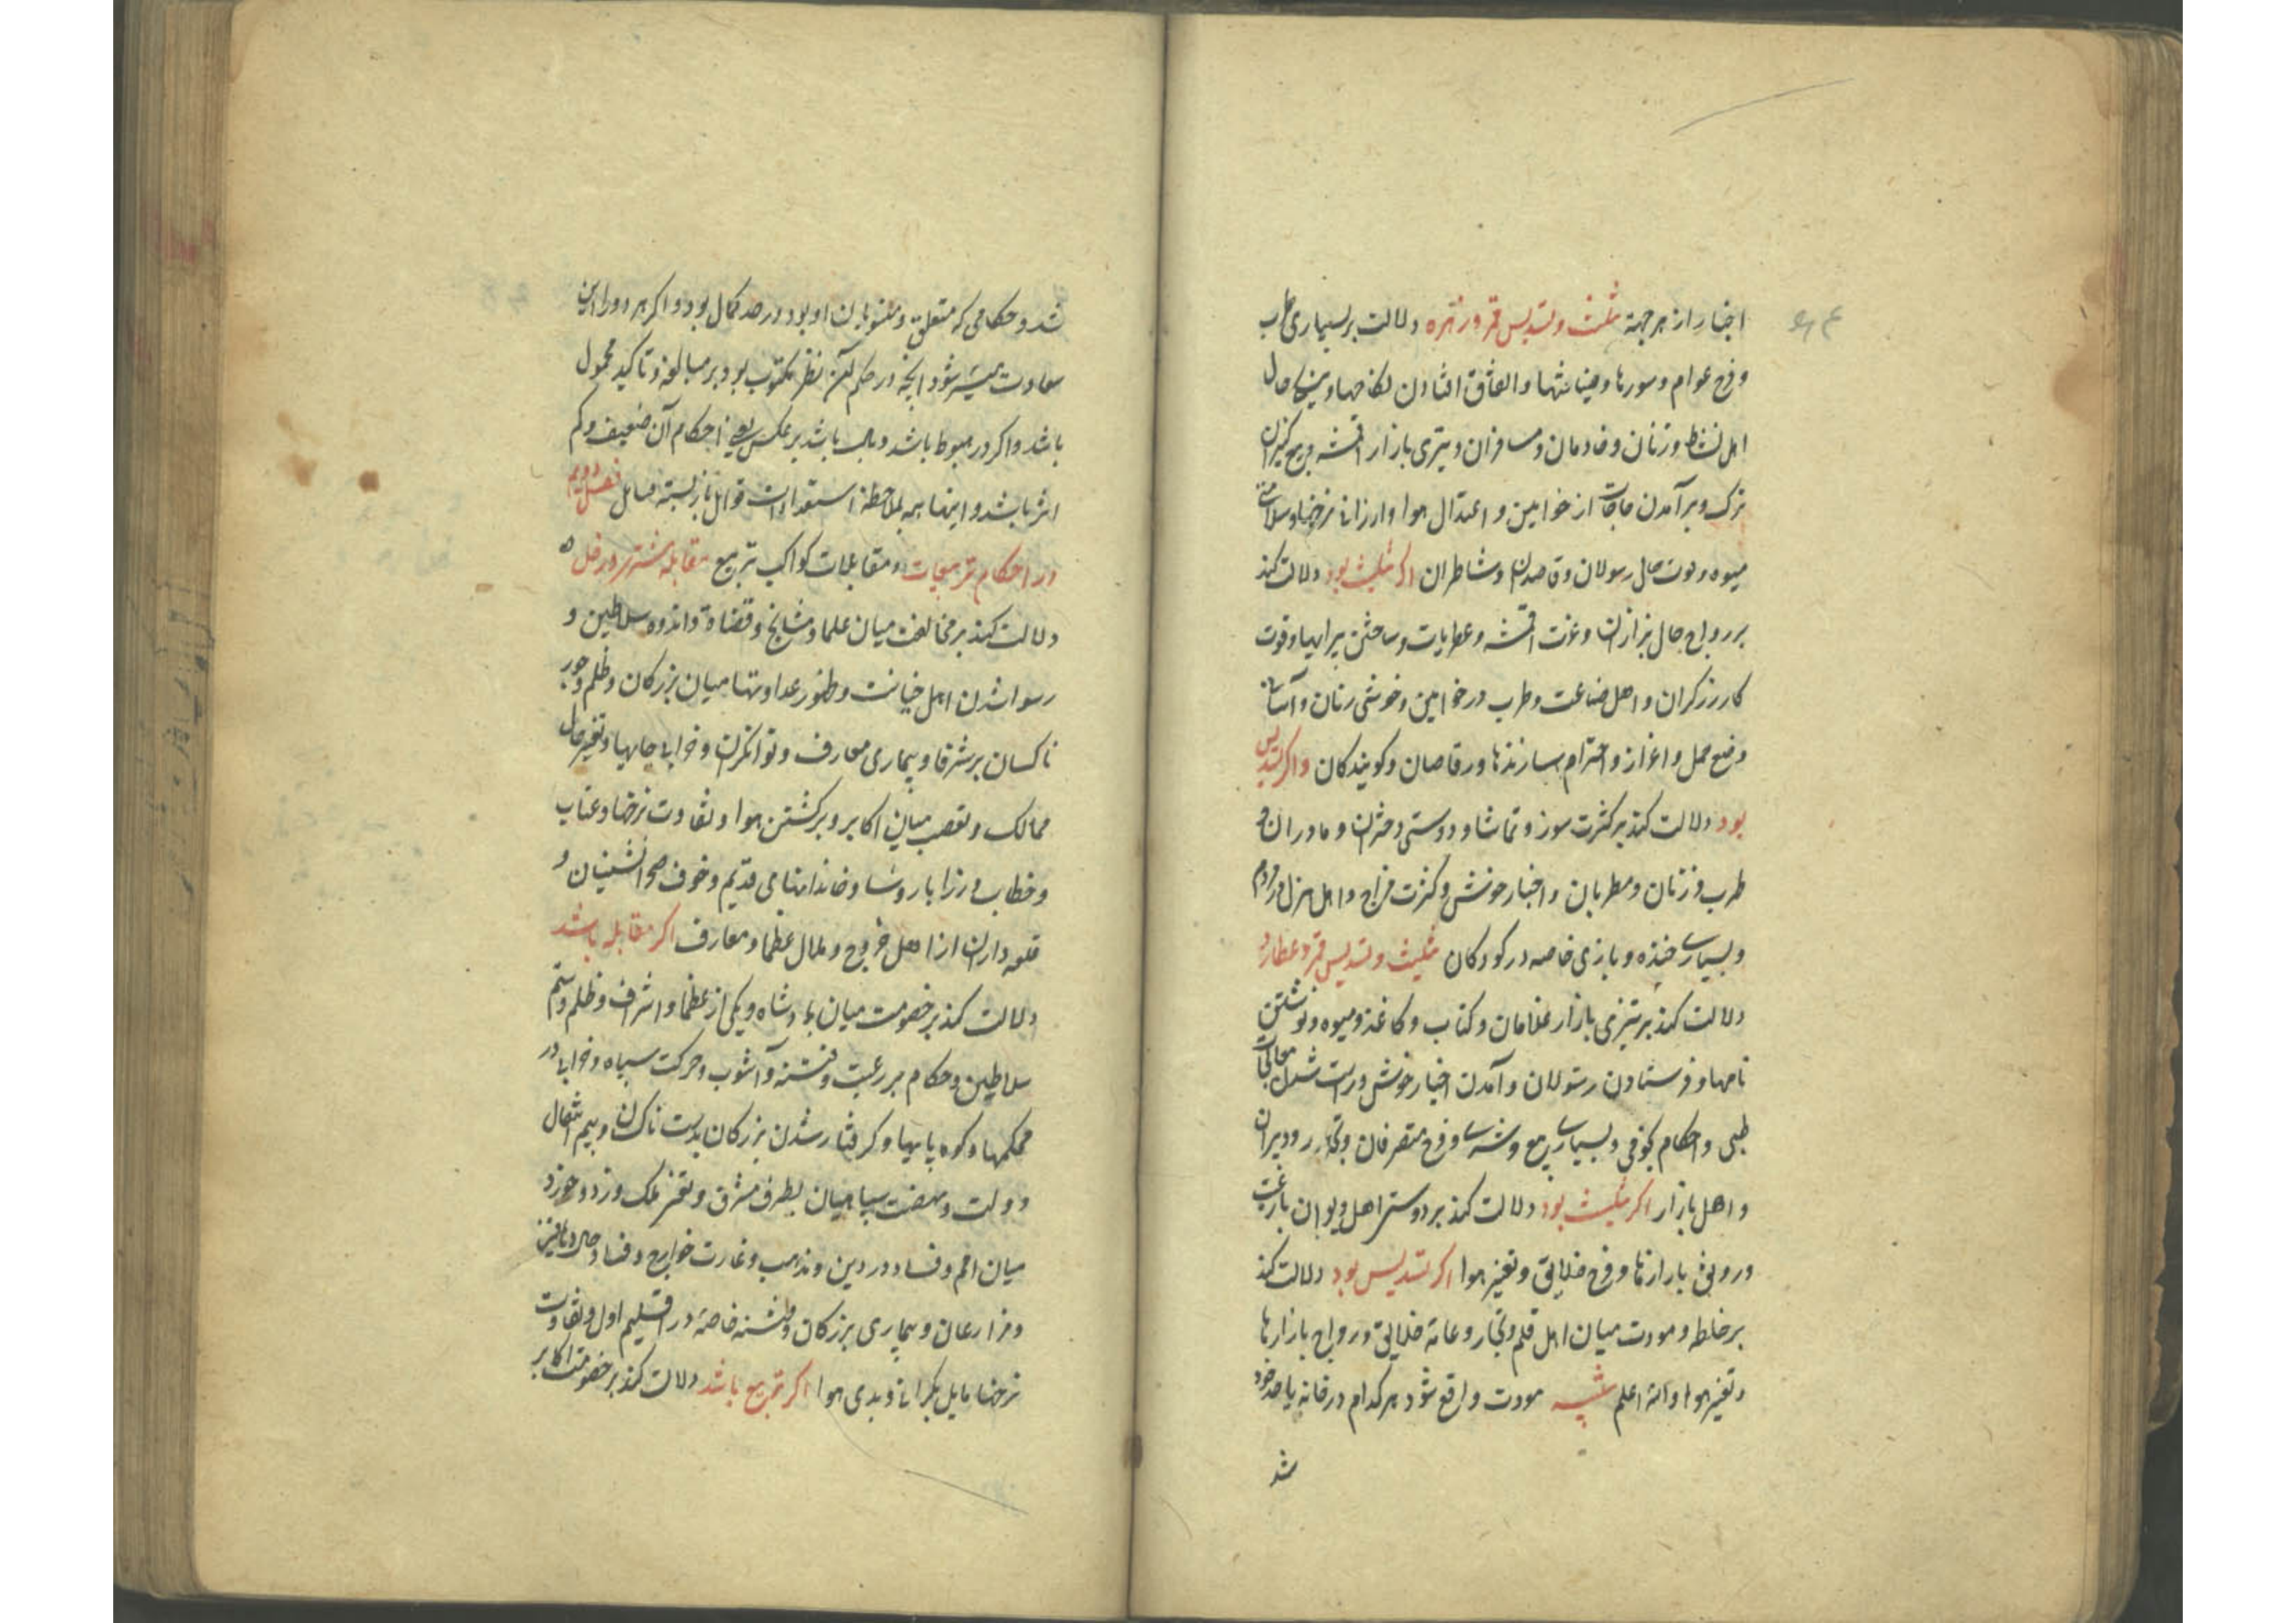 اخبار از هر جهة تثلیث و تسدیس قمر و زهره دلالت بر بسیاری طرب
و فرح عوام و سورها و ضیافتها و اتفاق افتادن نکاحها و نیکی حال
اهل نشاط و زنان و خادمان و مسافران و تیزی بازار اقمشه و بیع کنیزان
ترک و برآمدن حاجات از خواتین و اعتدال هوا و ارزانی نرخها و سلامتی
میوه و قوت حال رسولان و قاصدان و شاطران اگر تثلیث بود دلالت کند
بر رواج حال بزازان و عزت اقمشه و عطریات و ساختن پیرایها و قوت
کار زرگران و اهل صناعت و طرب در خواتین و خوشی زنان و آسانی
وضع حمل و اعزاز و احترام سازندها و رقاصان و گویندگان و اگر تسدیس
بود دلالت کند بر کثرت سور و تماشا و دوستی دختران و مادران و
طرب در زنان و مطربان و اخبار خوش و کثرت مزاح و اهل هزل مردم
و بسیاری خنده و بازی خاصه در کودکان تثلیث و تسدیس قمر و عطارد
دلالت کند بر تیزی بازار غلامان و کتاب و کاغذ و میوه و نوشتن
نامها و فرستادن رسولان و آمدن اخبار خوش و راست شدن معالجات
طبی و احکام نجومی و بسیاری بیع و شری و فرح متصرفان و تجار و دبیران
و اهل بازار اگر تثلیث بود دلالت کند بر دوستی اهل دیوان با رعیت
و رونق بازارها و فرح خلایق و تغییر هوا اگر تسدیس بود دلالت کند
بر خلطه و مودت میان اهل قلم و تجار و عامه خلایق و رواج بازارها
و تغییر هوا والله اعلم تنبیه مودت واقع شود هر کدام در خانه یا حد خود
شد
شد و حکامی که متعلق و منسوبان او بود در حد کمال بود و اگر هر دو را این
سعادت میسر شود آنچه در حکم آن نظر مکتوب بود بر مبالغه و تاکید محمول
باشد و اگر در هبوط باشد و وبال باشد بر عکس یعنی احکام آن ضعیف و کم
اثر باشد و اینها همه بملاحظه استعدادات قوابل باز بسته مسایل فصل دویم
در احکام تربیعات و مقابلات کواکب تربیع مقابله مشتری و زحل
دلالت کند بر مخالفت میان علما و مشایخ و قضاة و اندوه سلاطین و
رسوا شدن اهل خیانت و ظهور عداوتها میان بزرگان و ظلم و جور
ناکسان بر شرفا و بیماری معارف و توانگران و خرابی جایها و تغییر حال
ممالک و تعصب میان اکابر و برگشتن هوا و تفاوت نرخها و عتاب
و خطاب وزرا با روسا و خاندانهای قدیم و خوف صحرانشینان و
قلعه داران از اهل خروج و ملال عظما و معارف اگر مقابله باشد
دلالت کند بر خصومت میان پادشاه و یکی از عظما و اشراف و ظلم و ستم
سلاطین و حکام بر رعیت و فتنه و آشوب و حرکت سپاه و خرابی در
محکمها و کوه پایها و گرفتار شدن بزرگان بدست ناکسان و بیم انتقال
دولت و نهضت سپاهیان بطرف مشرق و تغیر ملک و زد و خورد
میان امم و فساد در دین و مذهب و غارت خوارج و فساد حال دهاقین
و مزارعان و بیماری بزرگان و فتنه خاصه در اقلیم اول و تفاوت
نرخها مایل بگرانی و بدی هوا اگر تربیع باشد دلالت کند بر خصومت اکابر